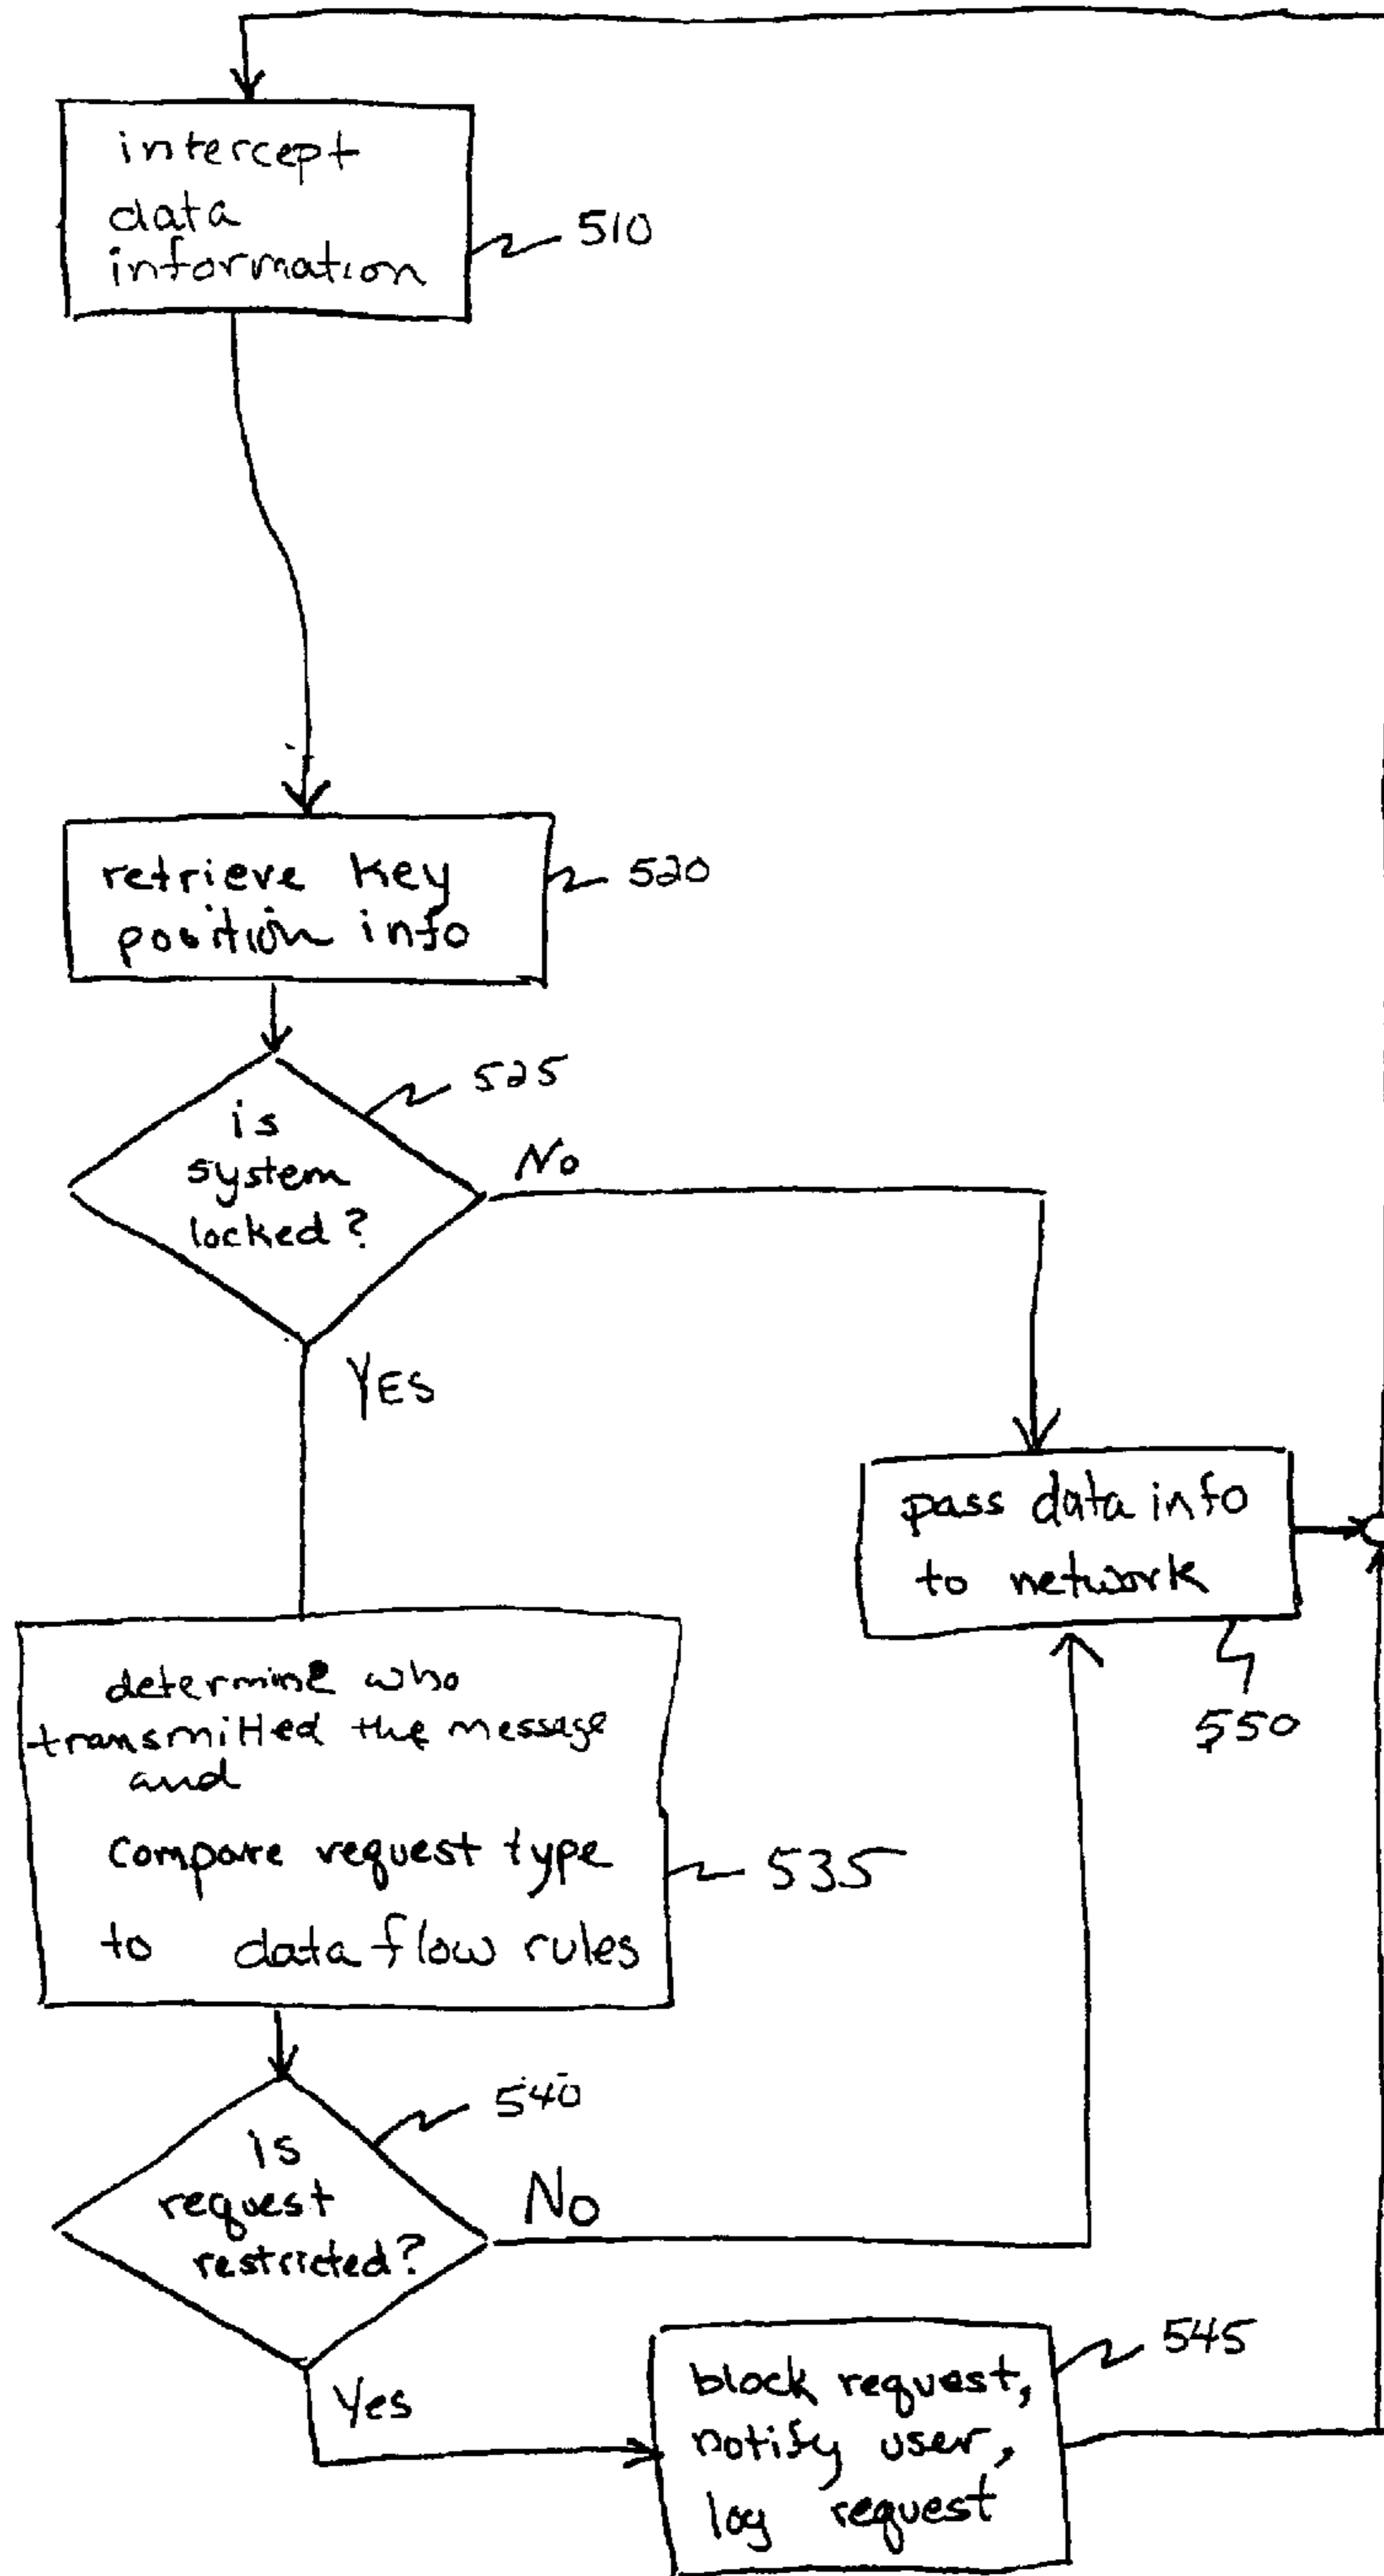 intercept
data
information
510
retrieve key
position info
520
525
is
system
locked?
No
YES
pass data info
to network
550
determine who
transmitted the message
and
compare request type
to data flow rules
535
540
is
request
restricted?
No
Yes
545
block request,
notify user,
log request